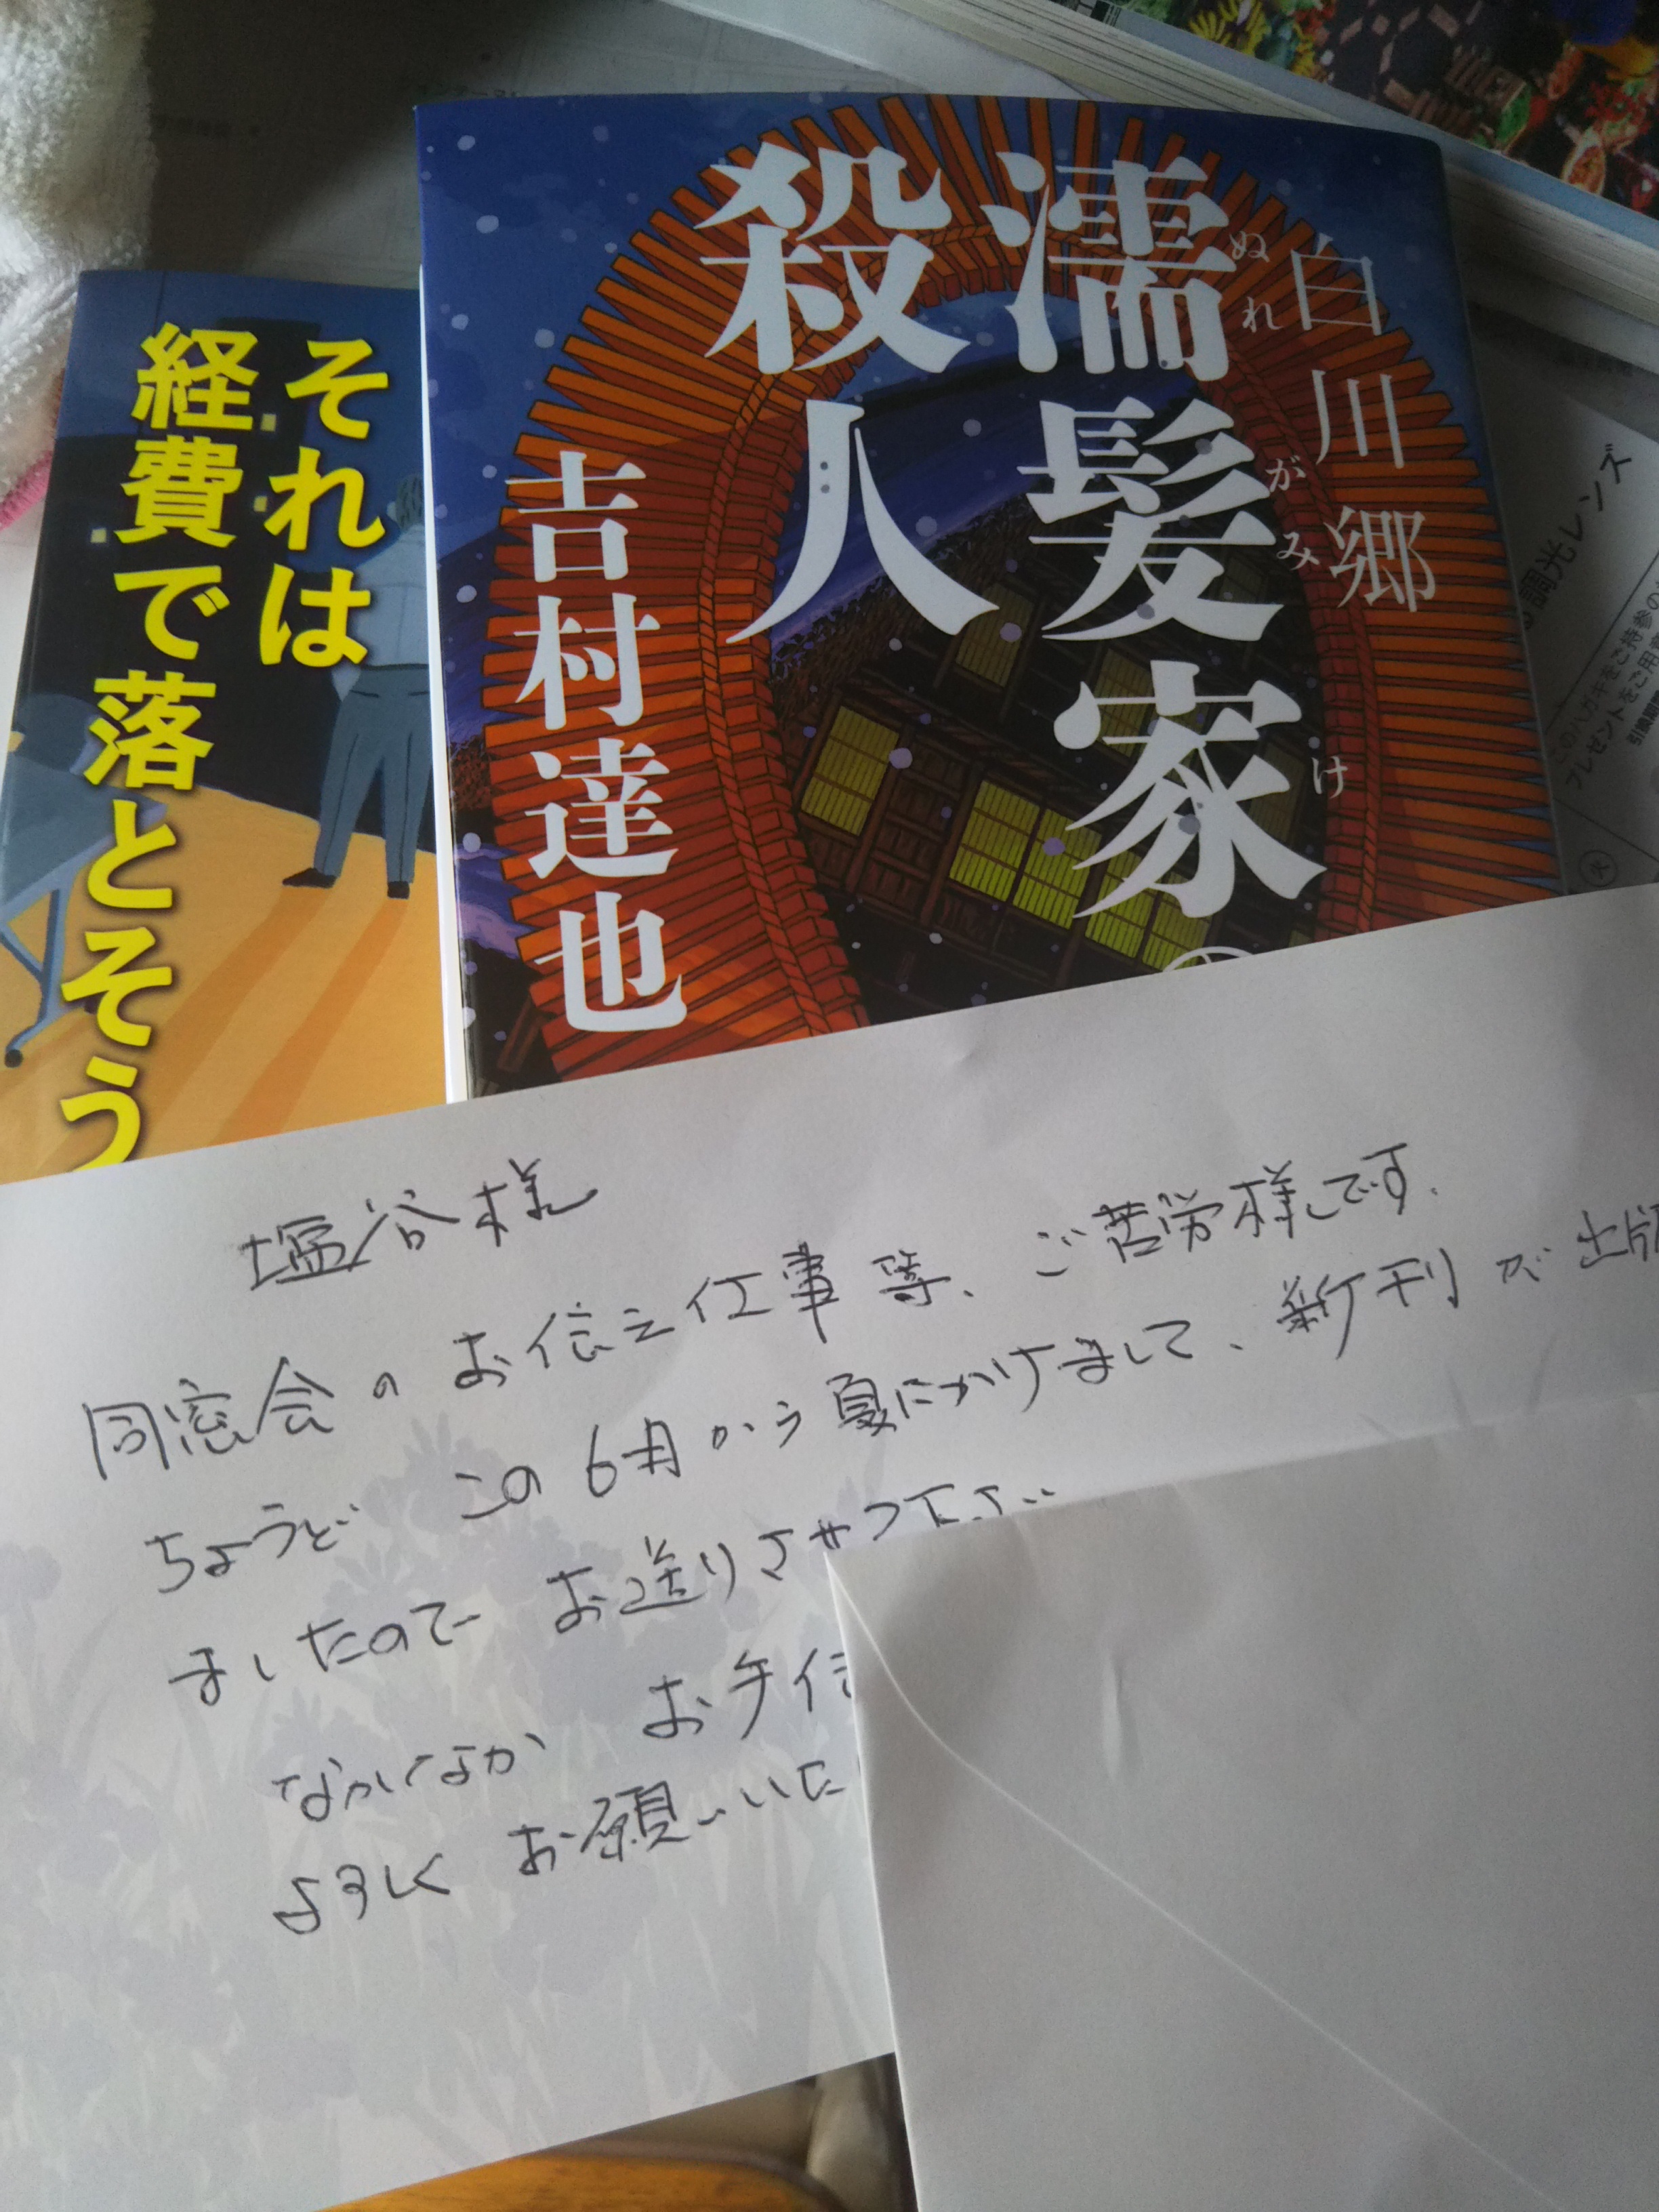 白川郷
濡髪家の
ぬれがみけ
殺人
吉村達也
それは
経費で落とそう
調光レンズ
このハガキをご持参の
プレゼントをご用意
塩谷様
同窓会のお伝え仕事等、ご苦労様です.
ちょうど この6月から夏にかけまして、新刊が出版
ましたので お送りさせて下さい
なかなか お手伝
よろしく お願いいた